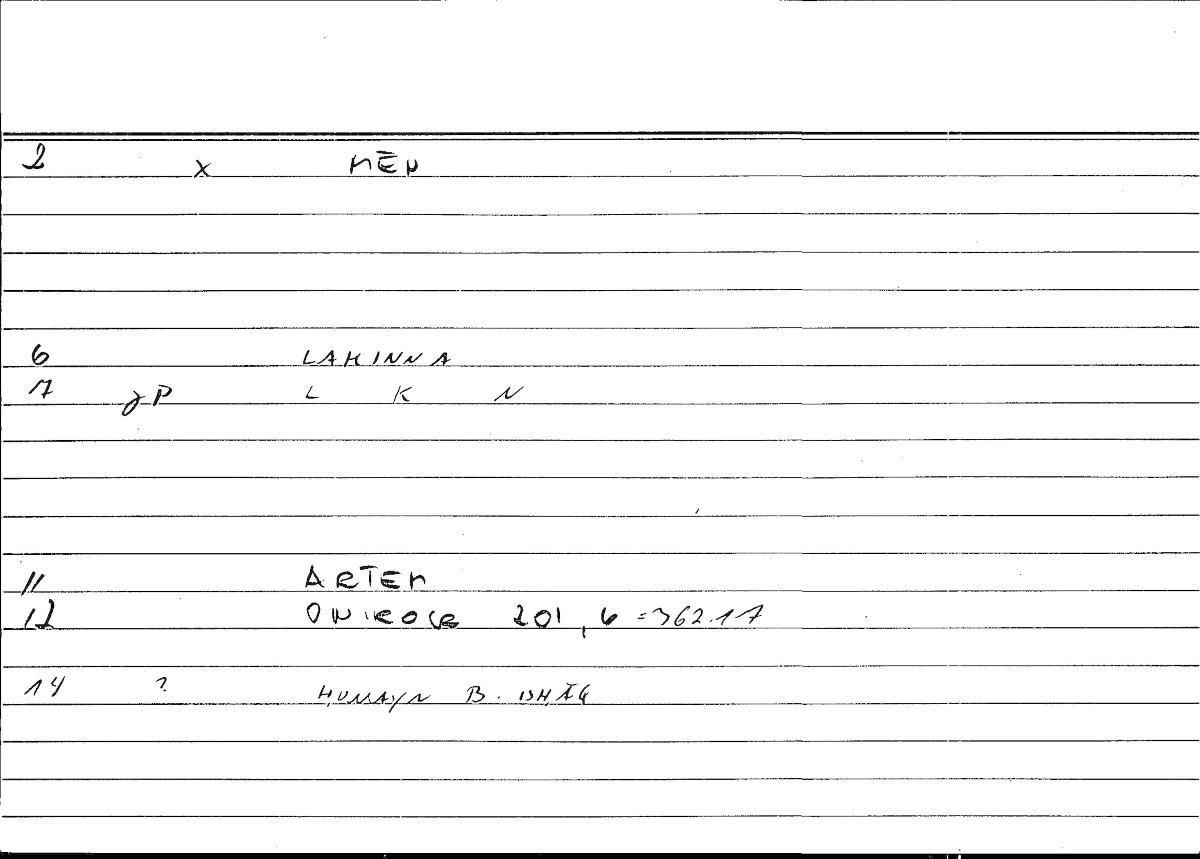 2 x MĒN
6 LAKINNA
7 gP L K N
11 ARTEM
12 ONIROCR 201,6 =362.17
14 ? ḤUNAYN B. ISḤĀQ